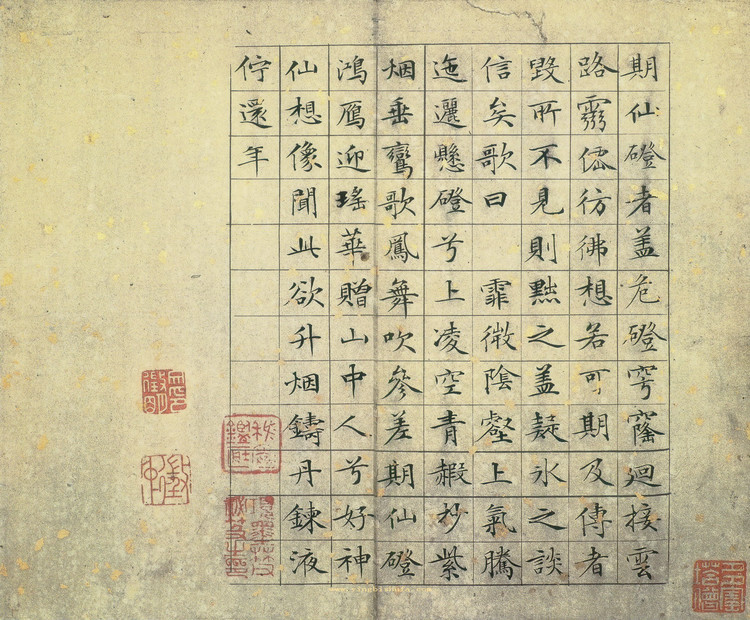 期仙磴者盖危磴穹窿迴接雲
路靈僊彷彿想若可期及傳者
毀所不見則黙之盖疑冰之談
信矣歌曰 霏微陰壑上氣騰
迤邐懸磴兮上凌空青赮杪紫
烟垂鸞歌鳳舞吹參差期仙磴
鴻鴈迎瑤華贈山中人兮好神
仙想像聞此欲升烟鑄丹鍊液
佇還年